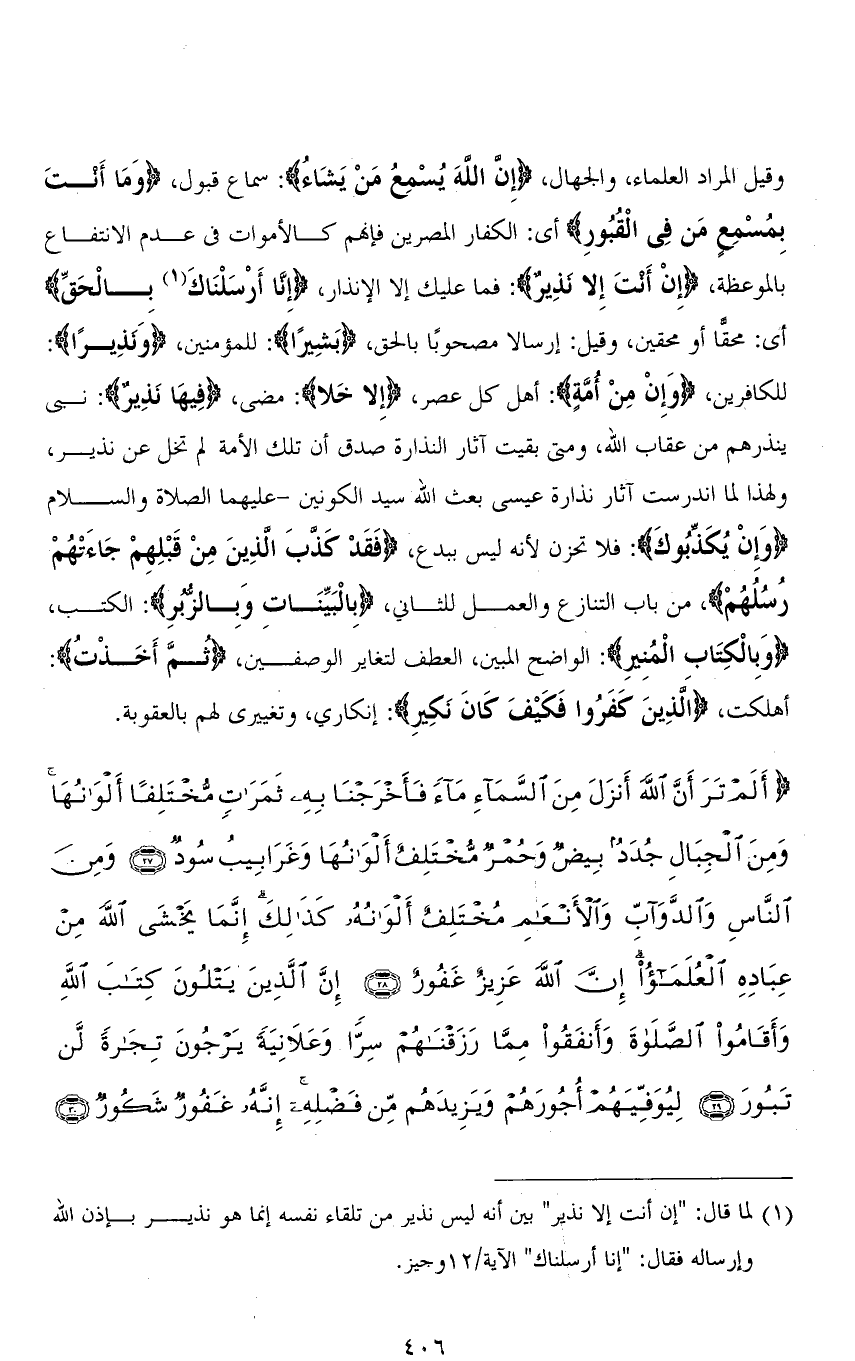 وقيل المراد العلماء، والجهال، ﴿إِنَّ اللَّهَ يُسْمِعُ مَنْ يَشَاءُ﴾: سماع قبول، ﴿وَمَا أَنْتَ
بِمُسْمِعٍ مَن فِي الْقُبُورِ﴾ أى: الكفار المصرين فإنهم كالأموات فى عدم الانتفاع
بالموعظة، ﴿إِنْ أَنْتَ إِلا نَذِيرٌ﴾: فما عليك إلا الإنذار، ﴿إِنَّا أَرْسَلْنَاكَ(١) بِالْحَقِّ﴾
أى: محقًّا أو محقين، وقيل: إرسالا مصحوبًا بالحق، ﴿بَشِيرًا﴾: للمؤمنين، ﴿وَنَذِيرًا﴾:
للكافرين، ﴿وَإِنْ مِنْ أُمَّةٍ﴾: أهل كل عصر، ﴿إِلا خَلا﴾: مضى، ﴿فِيهَا نَذِيرٌ﴾: نبى
ينذرهم من عقاب الله، ومتى بقيت آثار النذارة صدق أن تلك الأمة لم تخل عن نذير،
ولهذا لما اندرست آثار نذارة عيسى بعث الله سيد الكونين -عليهما الصلاة والسلام
﴿وَإِنْ يُكَذِّبُوكَ﴾: فلا تحزن لأنه ليس ببدع، ﴿فَقَدْ كَذَّبَ الَّذِينَ مِنْ قَبْلِهِمْ جَاءَتْهُمْ
رُسُلُهُمْ﴾، من باب التنازع والعمل للثانى، ﴿بِالْبَيِّنَاتِ وَبِالزُّبُرِ﴾: الكتب،
﴿وَبِالْكِتَابِ الْمُنِيرِ﴾: الواضح المبين، العطف لتغاير الوصفين، ﴿ثُمَّ أَخَذْتُ﴾:
أهلكت، ﴿الَّذِينَ كَفَرُوا فَكَيْفَ كَانَ نَكِيرِ﴾: إنكاري، وتغييرى لهم بالعقوبة.
﴿أَلَمْ تَرَ أَنَّ ٱللَّهَ أَنزَلَ مِنَ ٱلسَّمَآءِ مَآءً فَأَخْرَجْنَا بِهِۦ ثَمَرَٰتٍ مُّخْتَلِفًا أَلْوَٰنُهَا ۚ
وَمِنَ ٱلْجِبَالِ جُدَدُۢ بِيضٌ وَحُمْرٌ مُّخْتَلِفٌ أَلْوَٰنُهَا وَغَرَابِيبُ سُودٌ ٢٧ وَمِنَ
ٱلنَّاسِ وَٱلدَّوَآبِّ وَٱلْأَنْعَٰمِ مُخْتَلِفٌ أَلْوَٰنُهُۥ كَذَٰلِكَ ۗ إِنَّمَا يَخْشَى ٱللَّهَ مِنْ
عِبَادِهِ ٱلْعُلَمَٰٓؤُا۟ ۗ إِنَّ ٱللَّهَ عَزِيزٌ غَفُورٌ ٢٨ إِنَّ ٱلَّذِينَ يَتْلُونَ كِتَٰبَ ٱللَّهِ
وَأَقَامُوا۟ ٱلصَّلَوٰةَ وَأَنفَقُوا۟ مِمَّا رَزَقْنَٰهُمْ سِرًّا وَعَلَانِيَةً يَرْجُونَ تِجَٰرَةً لَّن
تَبُورَ ٢٩ لِيُوَفِّيَهُمْ أُجُورَهُمْ وَيَزِيدَهُم مِّن فَضْلِهِۦٓ ۚ إِنَّهُۥ غَفُورٌ شَكُورٌ ٣٠
(١) لما قال: "إن أنت إلا نذير" بين أنه ليس نذير من تلقاء نفسه إنما هو نذير بإذن الله
وإرساله فقال: "إنا أرسلناك" الآية/١٢وجيز.
٤٠٦